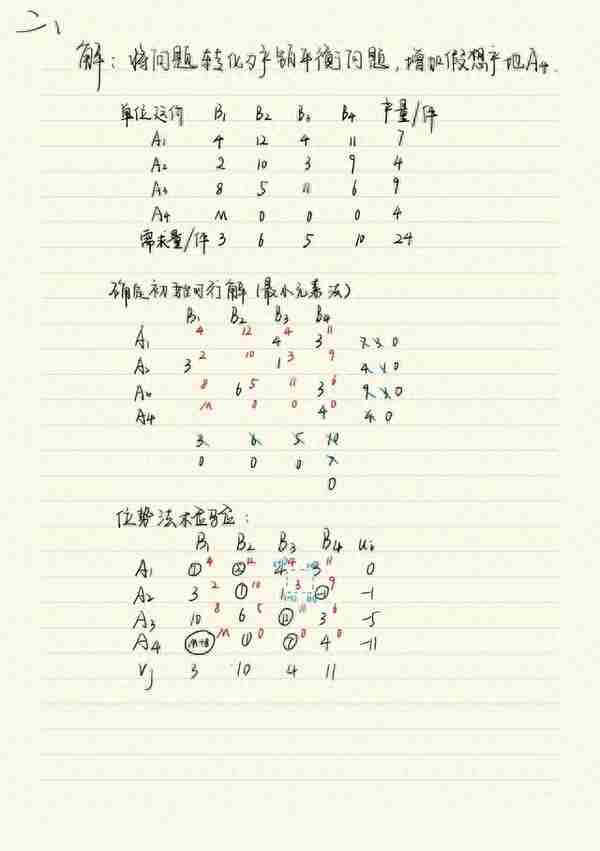 二、
解：将问题转化为产销平衡问题，增加假想产地A4.
单位运价 B1 B2 B3 B4 产量/件
A1 4 12 4 11 7
A2 2 10 3 9 4
A3 8 5 11 6 9
A4 M 0 0 0 4
需求量/件 3 6 5 10 24
确定初始可行解（最小元素法）
B1 B2 B3 B4
A1 4 12 4 4 3 11 7 3 0
A2 3 2 10 1 3 9 4 0
8 6 5 11 3 6 9 0
A4 M 0 0 4 0 4 0
3 6 5 10
0 0 0 7
0
位势法求检验：
B1 B2 B3 B4 ui
A1 ① 4 ② 12 4 4 3 11 0
A2 3 2 ① 10 1 3 9 -1
A3 10 8 6 5 ⑫ 11 3 6 -5
A4 M+8 M ① 0 ⑦ 0 4 0 -11
Vj 3 10 4 11